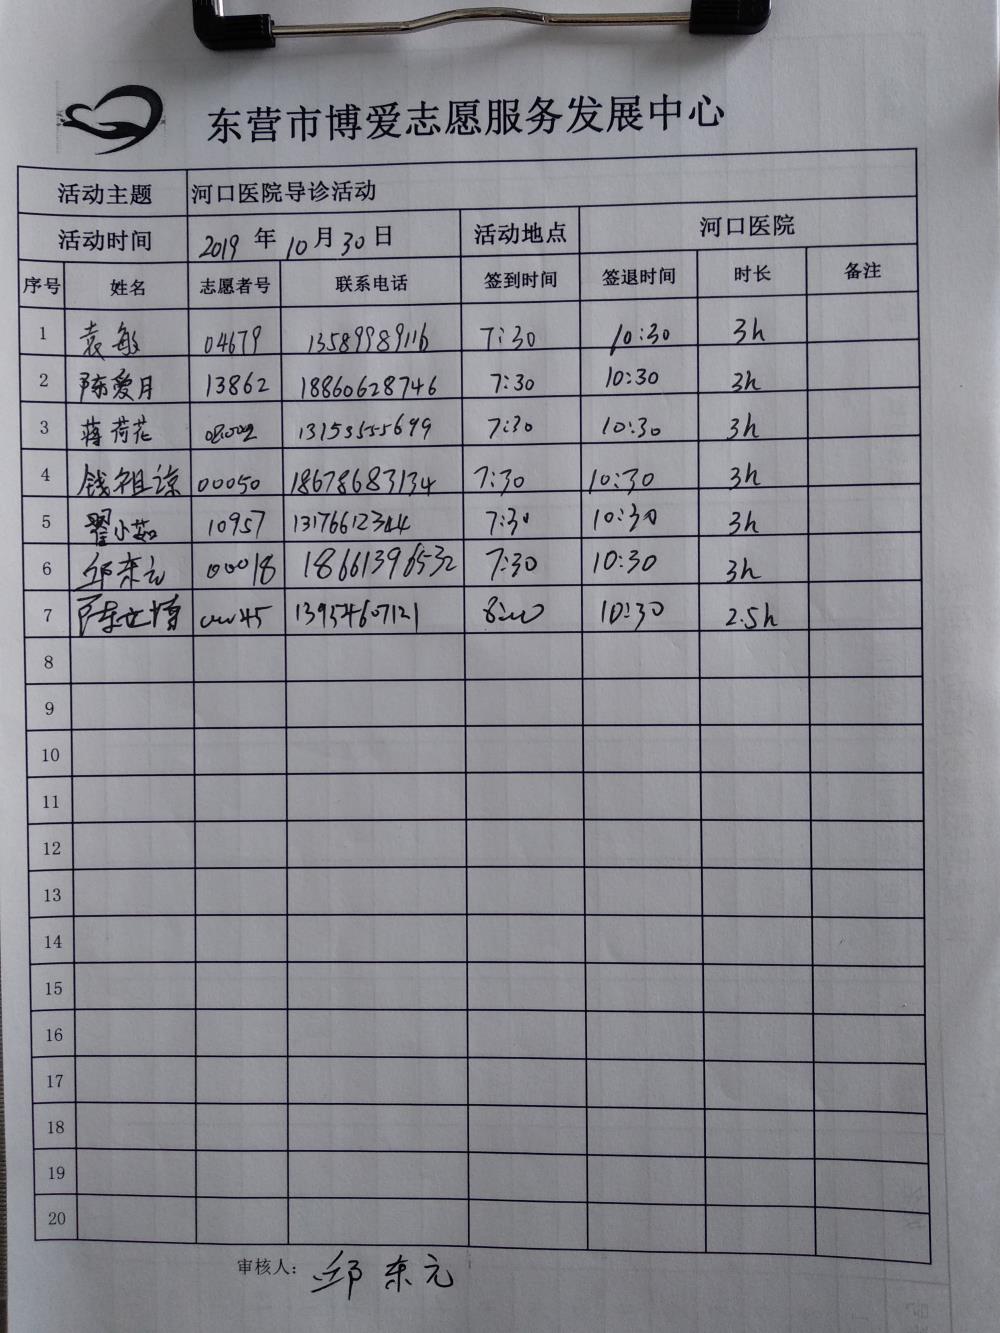 东营市博爱志愿服务发展中心
活动主题 河口医院导诊活动
活动时间 2019 年 10 月 30 日 活动地点 河口医院
序号 姓名 志愿者号 联系电话 签到时间 签退时间 时长 备注
1 袁敏 04679 13589989116 7:30 10:30 3h
2 陈爱月 13862 18860628746 7:30 10:30 3h
3 蒋荷花 7:30 10:30 3h
4 钱祖谅 00050 18678683134 7:30 10:30 3h
5 翟小茹 10957 13176612344 7:30 10:30 3h
6 邱东元 00018 18661396532 7:30 10:30 3h
7 13954607121 8:00 10:30 2.5h
8
9
10
11
12
13
14
15
16
17
18
19
20
审核人: 邱东元